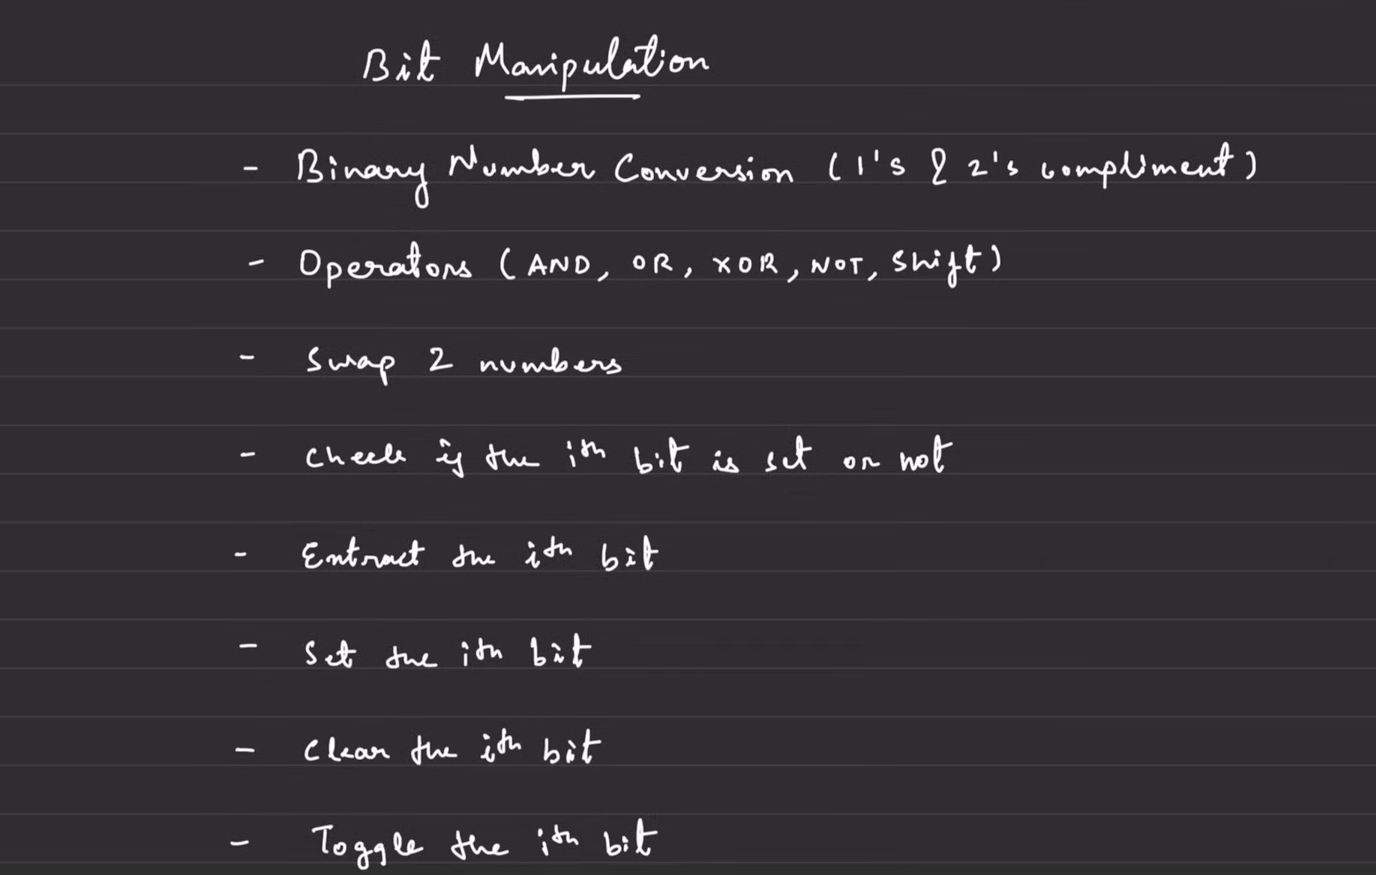 Bit Manipulation
- Binary Number Conversion (1's & 2's compliment)
- Operators (AND, OR, XOR, NOT, Shift)
- Swap 2 numbers
- Check if the ith bit is set or not
- Extract the ith bit
- Set the ith bit
- Clear the ith bit
- Toggle the ith bit